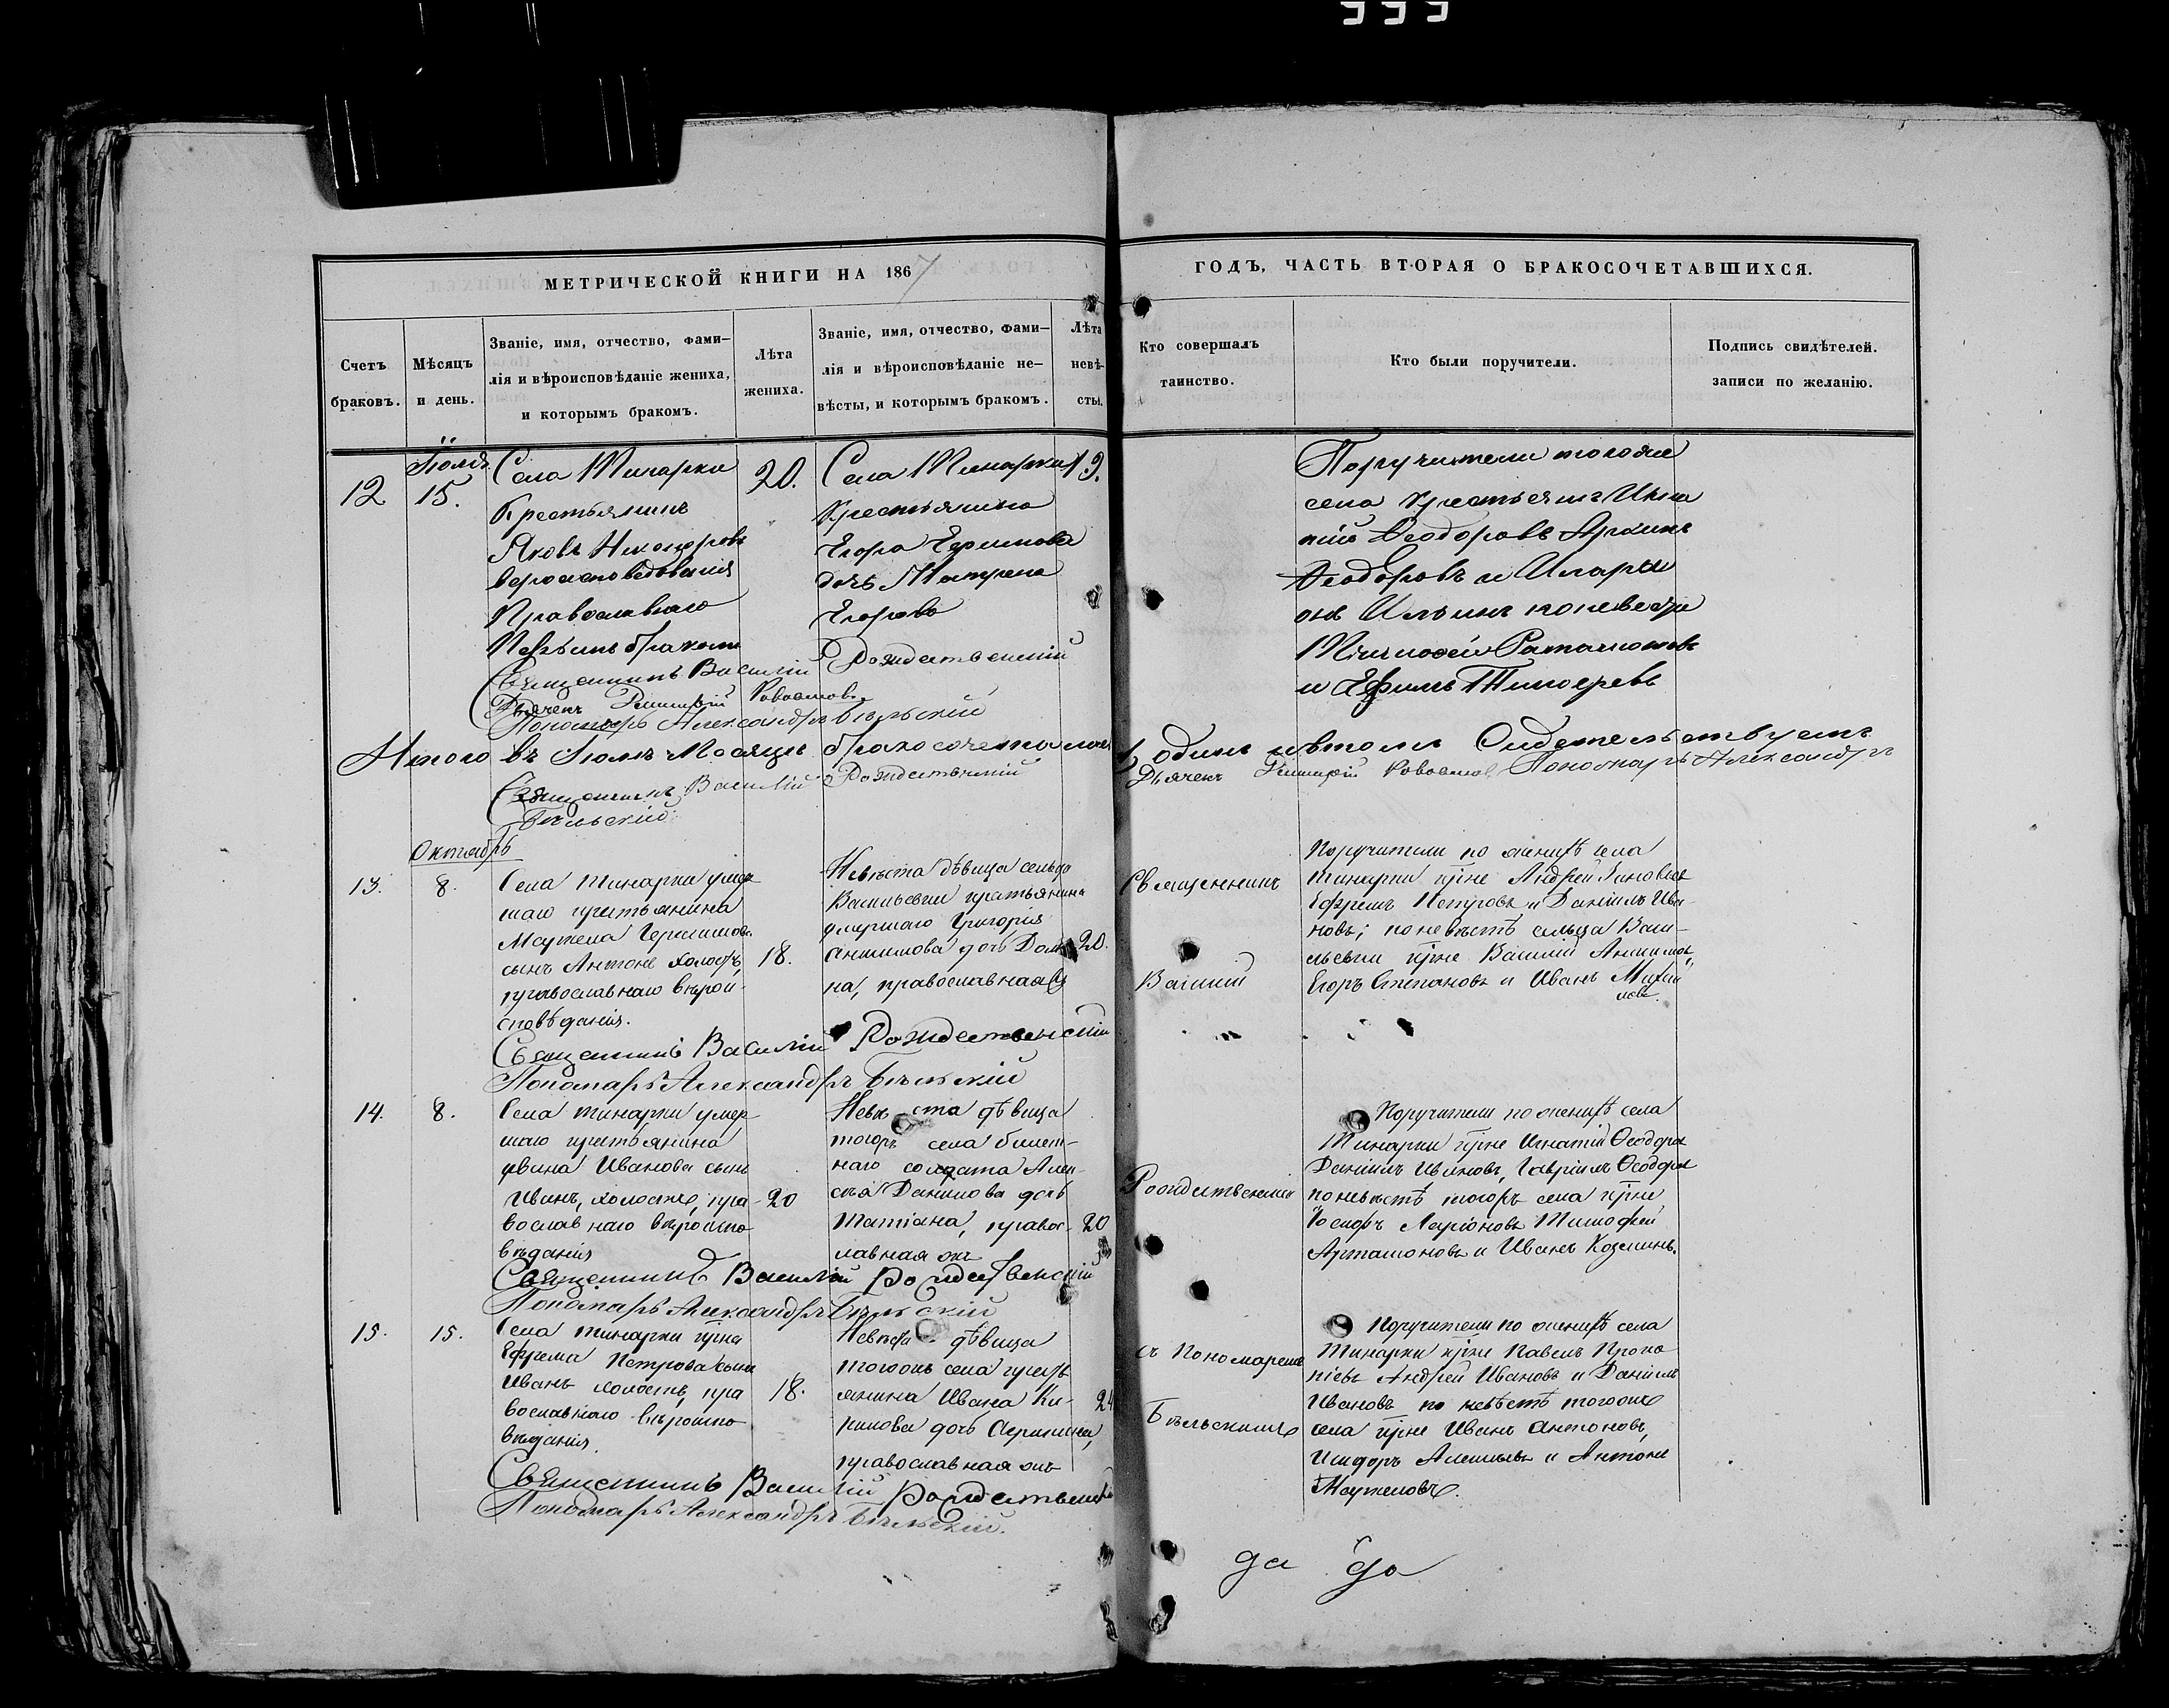 МЕТРИЧЕСКОЙ КНИГИ НА 1867
ГОДЪ, ЧАСТЬ ВТОРАЯ О БРАКОСОЧЕТАВШИХСЯ.
Счетъ
браковъ.
Мѣсяцъ
и день.
Званіе, имя, отчество, фами-
лія и вѣроисповѣданіе жениха,
и которымъ бракомъ.
Лѣта
жениха.
Званіе, имя, отчество, фами-
лія и вѣроисповѣданіе не-
вѣсты, и которымъ бракомъ.
Лѣта
невѣ-
сты.
Кто совершалъ
таинство.
Кто были поручители.
Подпись свидѣтелей.
записи по желанію.
12
Іюля
15.
Села Тинарки
Крестьянинъ
Яковъ
Православнаго
Первымъ бракомъ
20.
Села Тинарки
Крестьянина
Егора Ефимова
дочь Матрена
Егорова
19.
Поручители тогоже
села
Ѳеодоровъ
Ѳеодоровъ и Иларі
онъ Ильинъ по невесте
и Ефимъ
Священникъ Василій Рождественскій
Дьячекъ
Пономарь Александръ Бѣльскій
Итого въ Іюлѣ Месяцѣ бракосочетались
1 одинъ Сидетельствуемъ
Священникъ Василій Рождественскій
Дьячекъ Пономарь Александръ
Бѣльскій
Октябрь
13.
8.
Села Тинарки умер
шаго крестьянина
сынъ Антонъ холостъ,
православнаго вѣрои-
сповѣданія.
18.
Невѣста дѣвица сельца
Васильевки крестьянина
умершаго Григорія
Анкимова дочь Дом
на, православная
20.
Священникъ
Василій
Поручители по женихѣ села
Тинарки кр҃не Андрей
Ефремъ Петровъ и Даніилъ Ива-
новъ; по невѣстѣ сельца Васи-
льевки кр҃не Василій
Егоръ Степановъ и Иванъ Михаи
ловъ.
Священникъ Василій Рождественскій
Пономарь Александръ Бѣльскій
14.
8.
Села Тинарки умер
шаго крестьянина
Иванова сынъ
Иванъ, холостъ, пра-
вославнаго вѣроиспо
вѣданія
20
Невѣста дѣвица
тогожъ села билет-
наго солдата Алек-
сѣя Данилова дочь
Татіана, правос-
лавная жъ
20
Рождественскій
Поручители по женихѣ села
Тинарки кр҃не Игнатій Ѳеодоровъ
Даніилъ Ивановъ, Гавріилъ Ѳеодоровъ
по невѣстѣ тогожъ села кр҃не
Іосифъ Ларіоновъ Тимофей
Артамоновъ и Иванъ Козминъ.
Священникъ Василій Рождественскій
Пономарь Александръ Бѣльскій
15.
15.
Села Тинарки кр҃на
Ефрема Петрова сынъ
Иванъ холостъ, пра
вославнаго вѣроиспо
вѣданія.
18.
Невѣста дѣвица
тогожъ села кресть
янина Ивана Ки-
рилова дочь
православная жъ
24
съ Пономаремъ
Бѣльскимъ
Поручители по женихѣ села
Тинарки кр҃не Павелъ Проко
піевъ Андрей Ивановъ и Даніилъ
Ивановъ по невѣстѣ тогожъ
села кр҃не Иванъ Антоновъ,
Исидоръ Алексѣевъ и Антонъ
Священникъ Василій Рождественскій
Пономарь Александръ Бѣльскій.